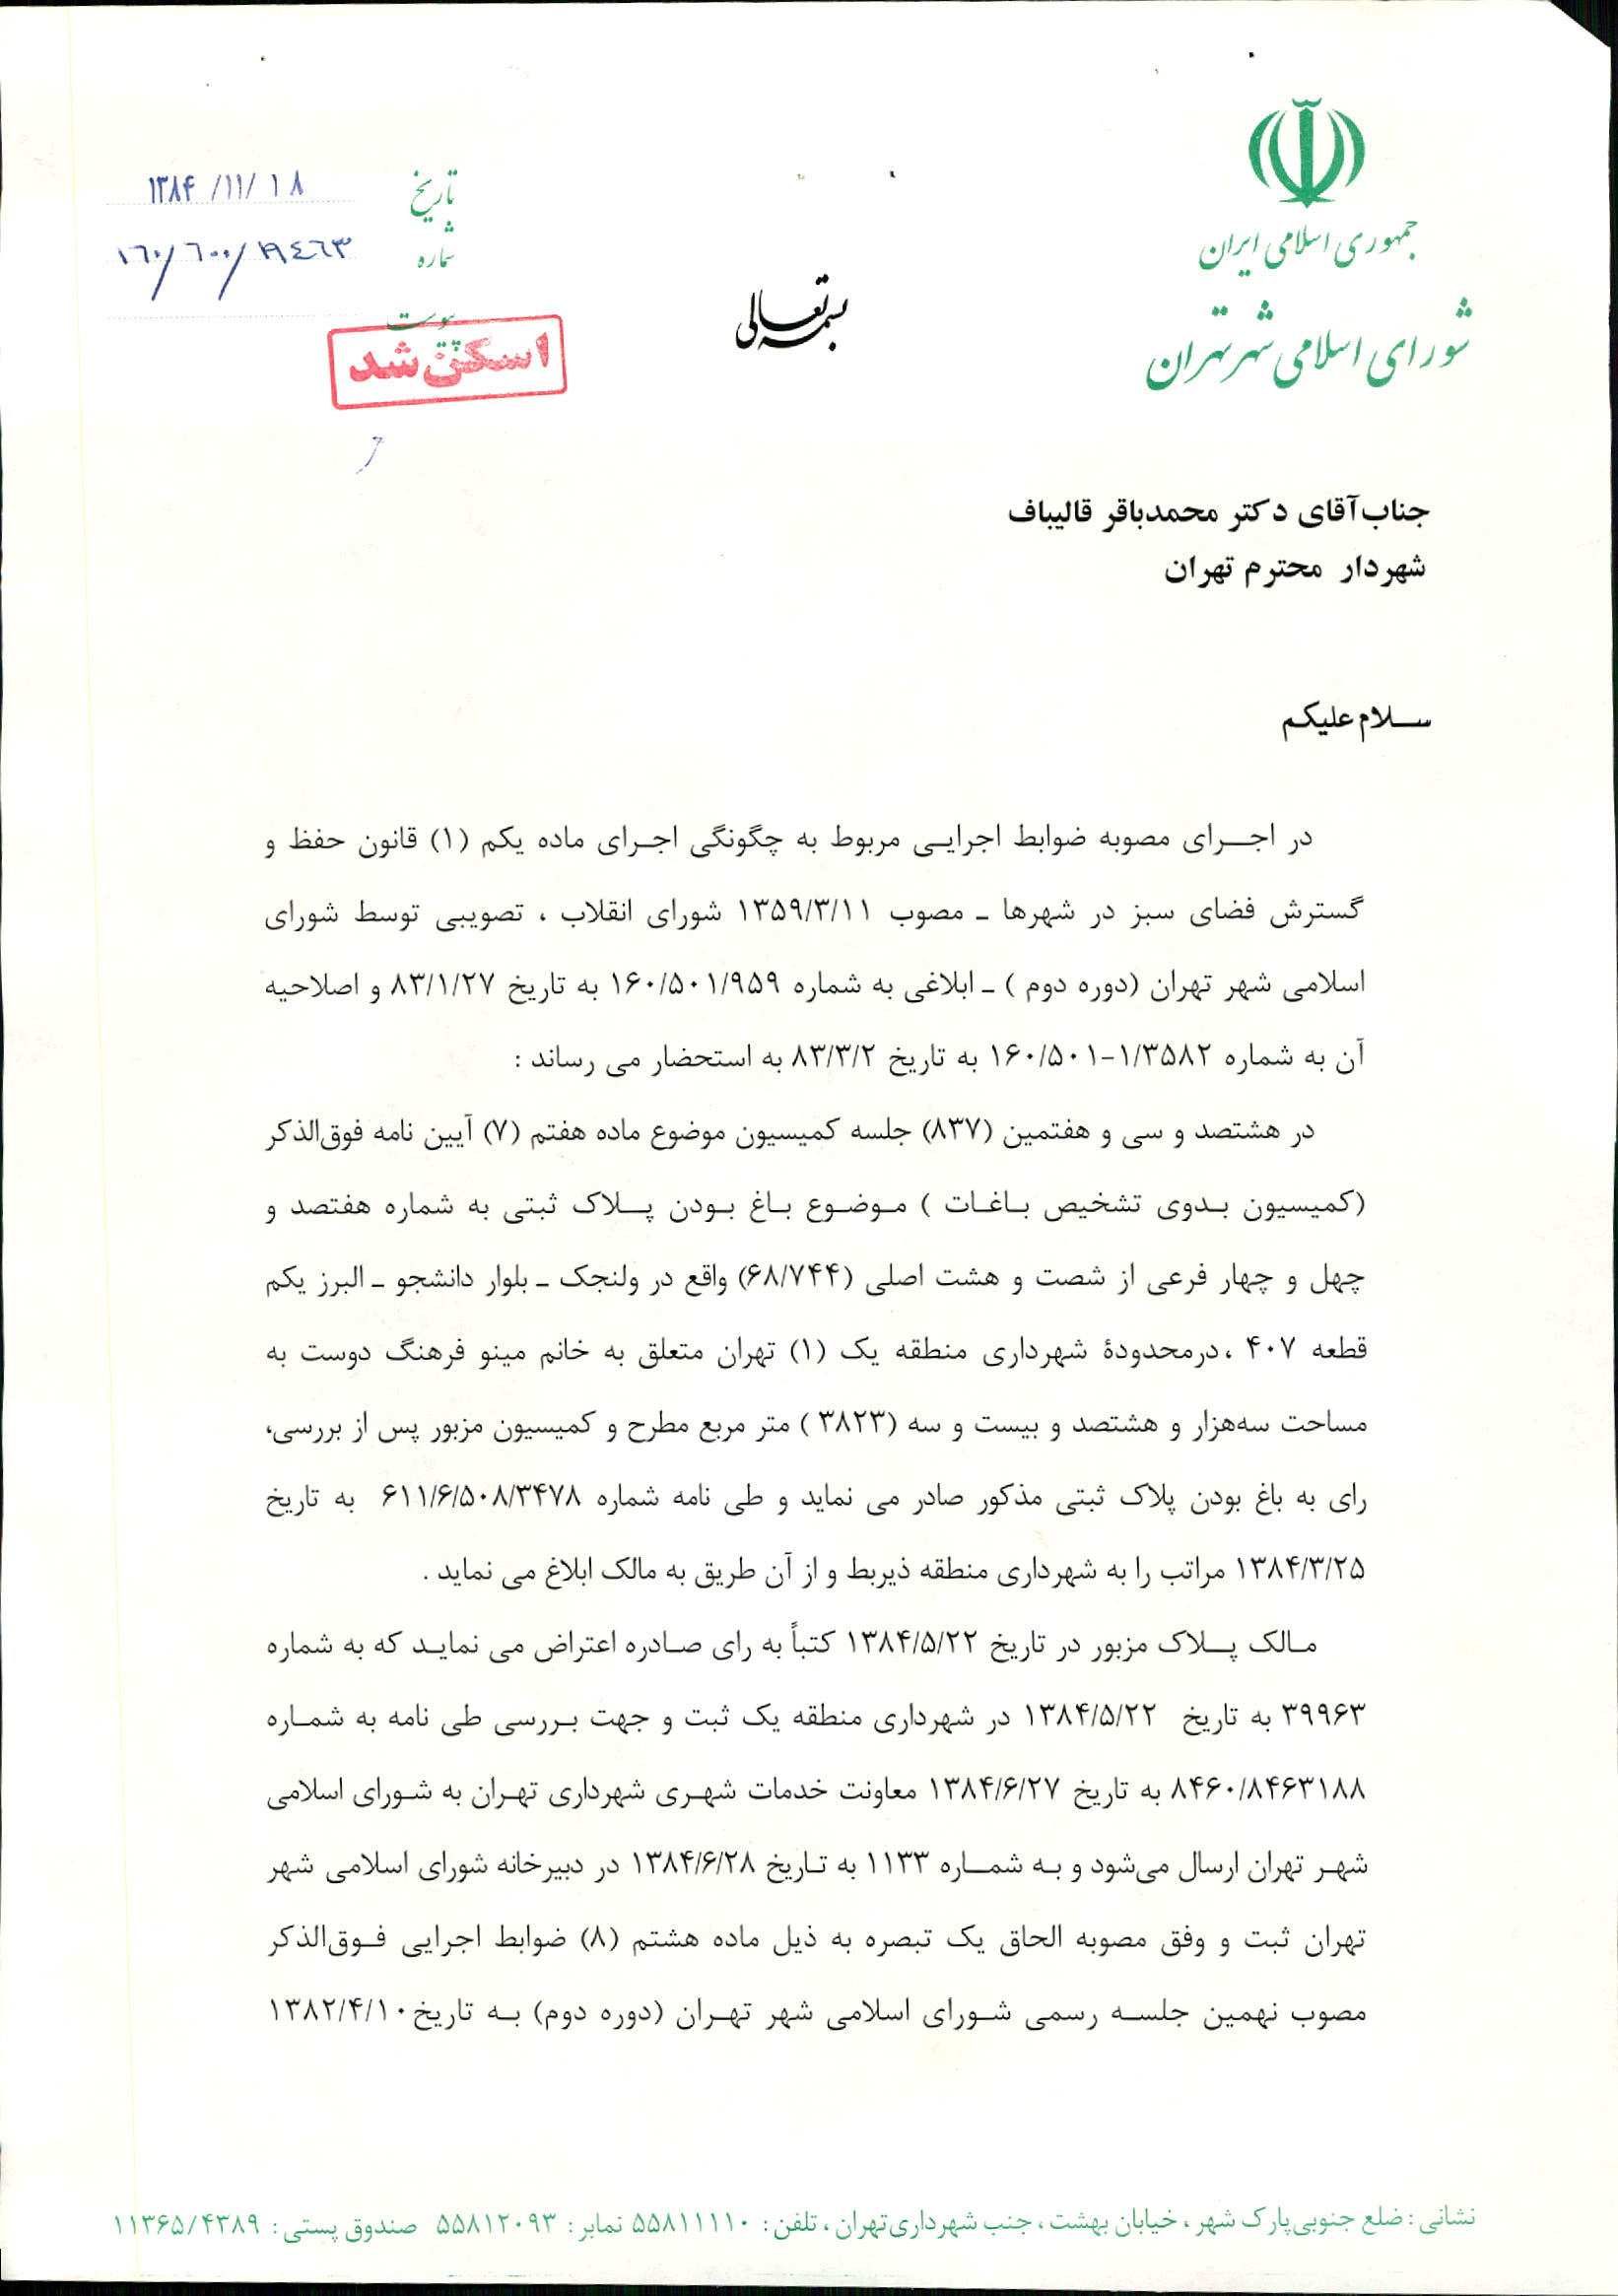 جمهوری اسلامی ایران
شورای اسلامی شهر تهران
بسمه تعالی
تاریخ ۱۳۸۴/۱۱/۱۸
شماره ۱۶۰/۶۰۰/۱۹۴۶۳
پیوست
اسکن شد
جناب آقای دکتر محمدباقر قالیباف
شهردار محترم تهران
سلام علیکم
در اجرای مصوبه ضوابط اجرایی مربوط به چگونگی اجرای ماده یکم (۱) قانون حفظ و
گسترش فضای سبز در شهرها ـ مصوب ۱۳۵۹/۳/۱۱ شورای انقلاب ، تصویبی توسط شورای
اسلامی شهر تهران (دوره دوم ) ـ ابلاغی به شماره ۱۶۰/۵۰۱/۹۵۹ به تاریخ ۸۳/۱/۲۷ و اصلاحیه
آن به شماره ۱/۳۵۸۲-۱۶۰/۵۰۱ به تاریخ ۸۳/۳/۲ به استحضار می رساند :
در هشتصد و سی و هفتمین (۸۳۷) جلسه کمیسیون موضوع ماده هفتم (۷) آیین نامه فوق‌الذکر
(کمیسیون بدوی تشخیص باغات ) موضوع باغ بودن پلاک ثبتی به شماره هفتصد و
چهل و چهار فرعی از شصت و هشت اصلی (۶۸/۷۴۴) واقع در ولنجک ـ بلوار دانشجو ـ البرز یکم
قطعه ۴۰۷ ،درمحدودۀ شهرداری منطقه یک (۱) تهران متعلق به خانم مینو فرهنگ دوست به
مساحت سه‌هزار و هشتصد و بیست و سه (۳۸۲۳ ) متر مربع مطرح و کمیسیون مزبور پس از بررسی،
رای به باغ بودن پلاک ثبتی مذکور صادر می نماید و طی نامه شماره ۶۱۱/۶/۵۰۸/۳۴۷۸ به تاریخ
۱۳۸۴/۳/۲۵ مراتب را به شهرداری منطقه ذیربط و از آن طریق به مالک ابلاغ می نماید .
مالک پلاک مزبور در تاریخ ۱۳۸۴/۵/۲۲ کتباً به رای صادره اعتراض می نماید که به شماره
۳۹۹۶۳ به تاریخ ۱۳۸۴/۵/۲۲ در شهرداری منطقه یک ثبت و جهت بررسی طی نامه به شماره
۸۴۶۰/۸۴۶۳۱۸۸ به تاریخ ۱۳۸۴/۶/۲۷ معاونت خدمات شهری شهرداری تهران به شورای اسلامی
شهر تهران ارسال می‌شود و به شماره ۱۱۳۳ به تاریخ ۱۳۸۴/۶/۲۸ در دبیرخانه شورای اسلامی شهر
تهران ثبت و وفق مصوبه الحاق یک تبصره به ذیل ماده هشتم (۸) ضوابط اجرایی فوق‌الذکر
مصوب نهمین جلسه رسمی شورای اسلامی شهر تهران (دوره دوم) به تاریخ۱۳۸۲/۴/۱۰
نشانی : ضلع جنوبی پارک شهر ، خیابان بهشت ، جنب شهرداری تهران ، تلفن : ۵۵۸۱۱۱۱۰ نمابر : ۵۵۸۱۲۰۹۳ صندوق پستی : ۱۱۳۶۵/۴۳۸۹